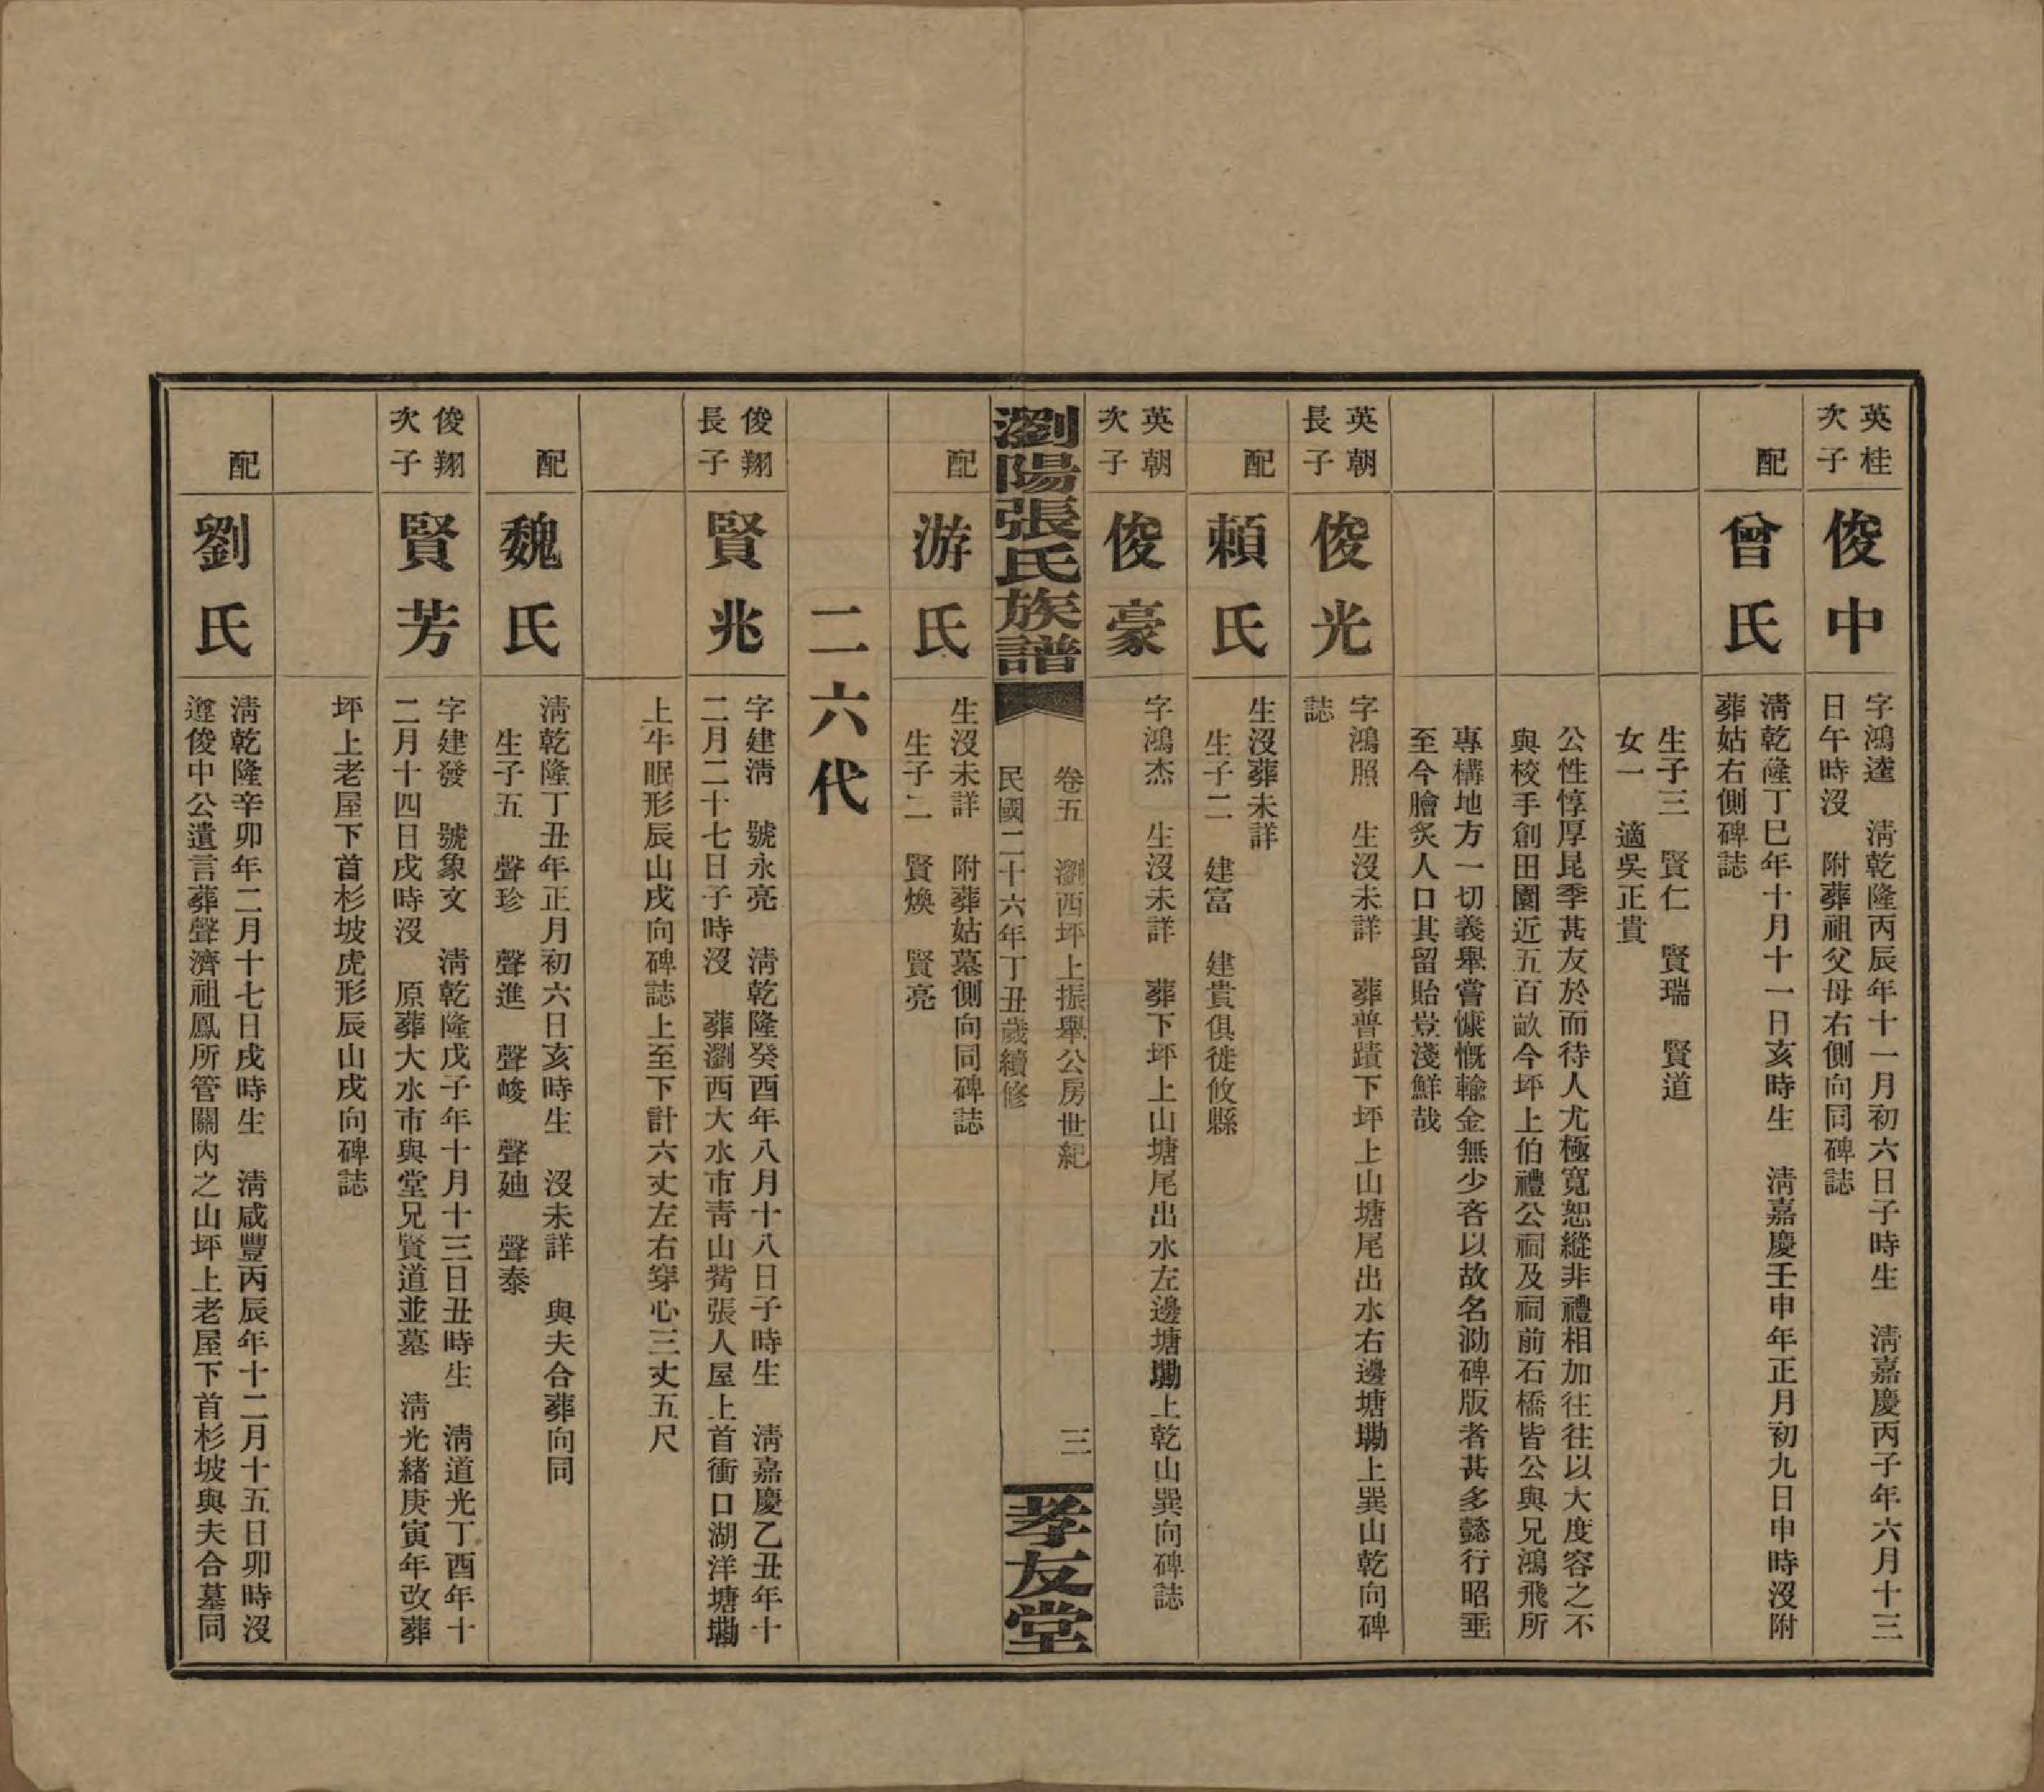 英桂
次子
俊中
字鴻逵　清乾隆丙辰年十一月初六日子時生　清嘉慶丙子年六月十三
日午時沒　附葬祖父母右側向同碑誌
配
曾氏
清乾隆丁巳年十月十一日亥時生　清嘉慶壬申年正月初九日申時沒附
葬姑右側碑誌
生子三　賢仁　賢瑞　賢道
女一　適吳正貴
公性惇厚昆季甚友於而待人尤極寬恕縱非禮相加往往以大度容之不
與校手創田園近五百畝今坪上伯禮公祠及祠前石橋皆公與兄鴻飛所
專構地方一切義舉嘗慷慨輸金無少吝以故名泐碑版者甚多懿行昭垂
至今膾炙人口其留貽豈淺鮮哉
英朝
長子
俊光
字鴻照　生沒未詳　葬普蹟下坪上山塘尾出水右邊塘墈上巽山乾向碑
誌
配
賴氏
生沒葬未詳
生子二　建富　建貴俱徙攸縣
英朝
次子
俊豪
字鴻杰　生沒未詳　葬下坪上山塘尾出水左邊塘墈上乾山巽向碑誌
瀏陽張氏族譜
卷五　瀏西坪上振舉公房世紀
民國二十六年丁丑歲續修
三
孝友堂
配
游氏
生沒未詳　附葬姑墓側向同碑誌
生子二　賢煥　賢亮
二六代
俊翔
長子
賢兆
字建清　號永亮　清乾隆癸酉年八月十八日子時生　清嘉慶乙丑年十
二月二十七日子時沒　葬瀏西大水市青山嘴張人屋上首衝口湖洋塘墈
上牛眠形辰山戌向碑誌上至下計六丈左右穿心三丈五尺
配
魏氏
清乾隆丁丑年正月初六日亥時生　沒未詳　與夫合葬向同
生子五　聲珍　聲進　聲峻　聲廸　聲泰
俊翔
次子
賢芳
字建發　號象文　清乾隆戊子年十月十三日丑時生　清道光丁酉年十
二月十四日戌時沒　原葬大水市與堂兄賢道並墓　清光緒庚寅年改葬
坪上老屋下首杉坡虎形辰山戌向碑誌
配
劉氏
清乾隆辛卯年二月十七日戌時生　清咸豐丙辰年十二月十五日卯時沒
遵俊中公遺言葬聲濟祖鳳所管關內之山坪上老屋下首杉坡與夫合墓同